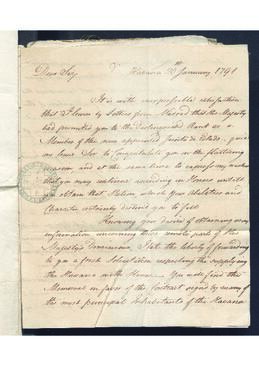 Dear Sir,
Havana 2th January 1791
It is with inexpressible satisfaction
that I learn by Letters from Madrid that His Majesty
had promoted you to the Distinguished Rank as a
Member of the new appointed Junta de Estado, give
me leave Sir to Congratulate you on the flattering
occasion and at the same time to express my wishes
that you may continue ascending in Honors untill
you attain that Station which your Abilities and
Character certainly distined you to fill
Knowing your desire of obtaining every
information concerning these remote parts of His
Majesty's Dominions, I take the liberty of forwarding
to you a fresh Solicitation respecting the supplying
the Havana with You will find the
Memorial in favor of the Contract signed by many of
the most principal Inhabitants of the Havana